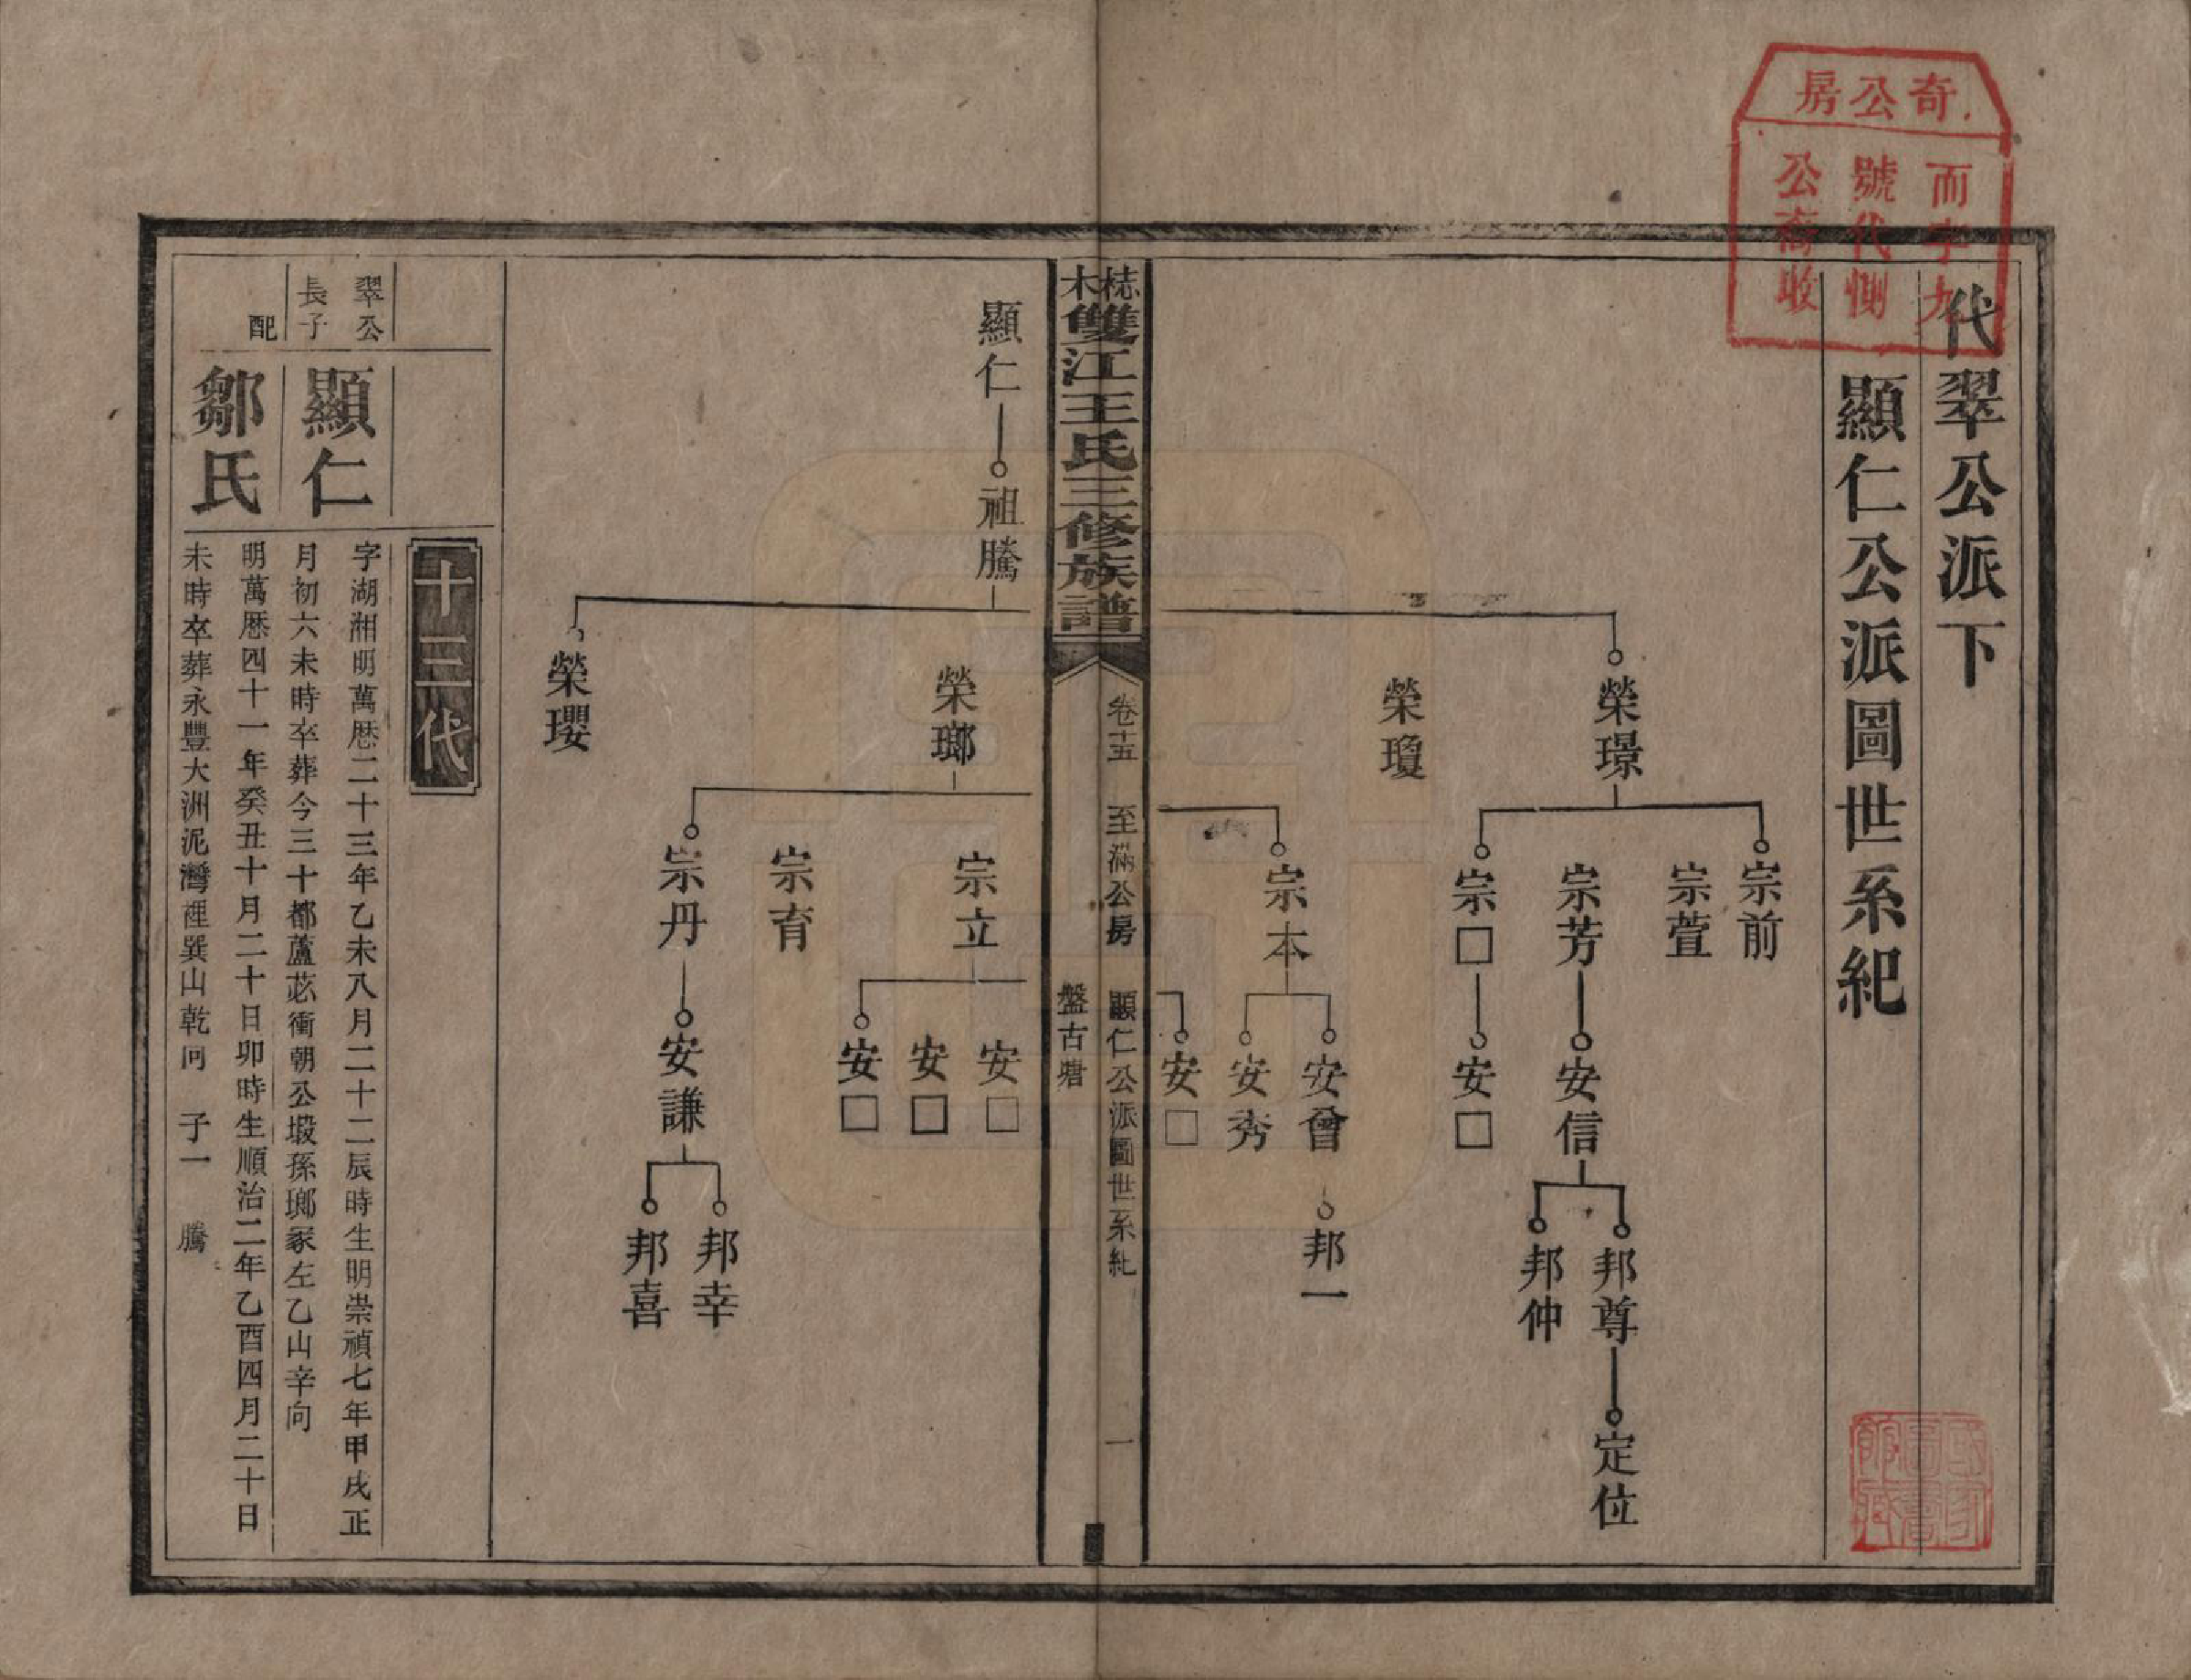 奇公房
而字九
號代惻
公裔收
代翠公派下
顯仁公派圖世系紀
榮璟
榮瓊
宗前
宗萱
宗芳
宗□
宗本
安信
安□
安曾
安秀
安□
邦尊
邦仲
邦一
定位
梽木雙江王氏三修族譜
卷十五
至滿公房
顯仁公派圖世系紀
盤古塘
一
顯仁
祖騰
榮瑯
榮瓔
宗立
宗育
宗丹
安□
安□
安□
安謙
邦幸
邦喜
十三代
翠公
長子
顯仁
字湖湘明萬厯二十三年乙未八月二十二辰時生明崇禎七年甲戌正
月初六未時卒葬今三十都蘆苾衝朝公塅孫瑯冢左乙山辛向
配
鄒氏
明萬厯四十一年癸丑十月二十日卯時生順治二年乙酉四月二十日
未時卒葬永豐大洲泥灣裡巽山乾向 子一 騰